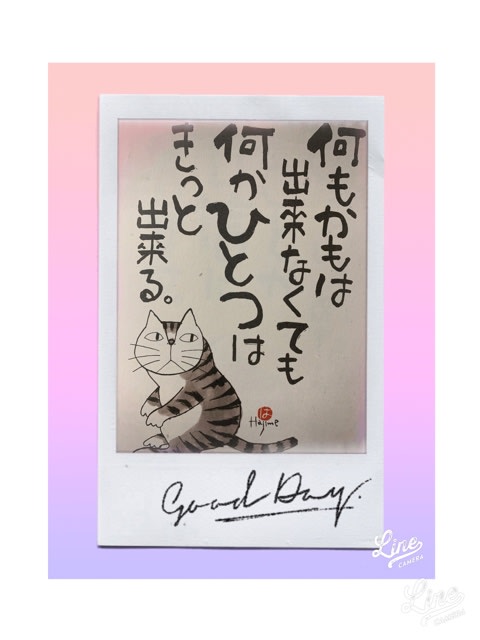 何もかもは
出来なくても
何かひとつは
きっと
出来る。
は
Hajime
Good Day.
Line
CAMERA
Line
CAMERA